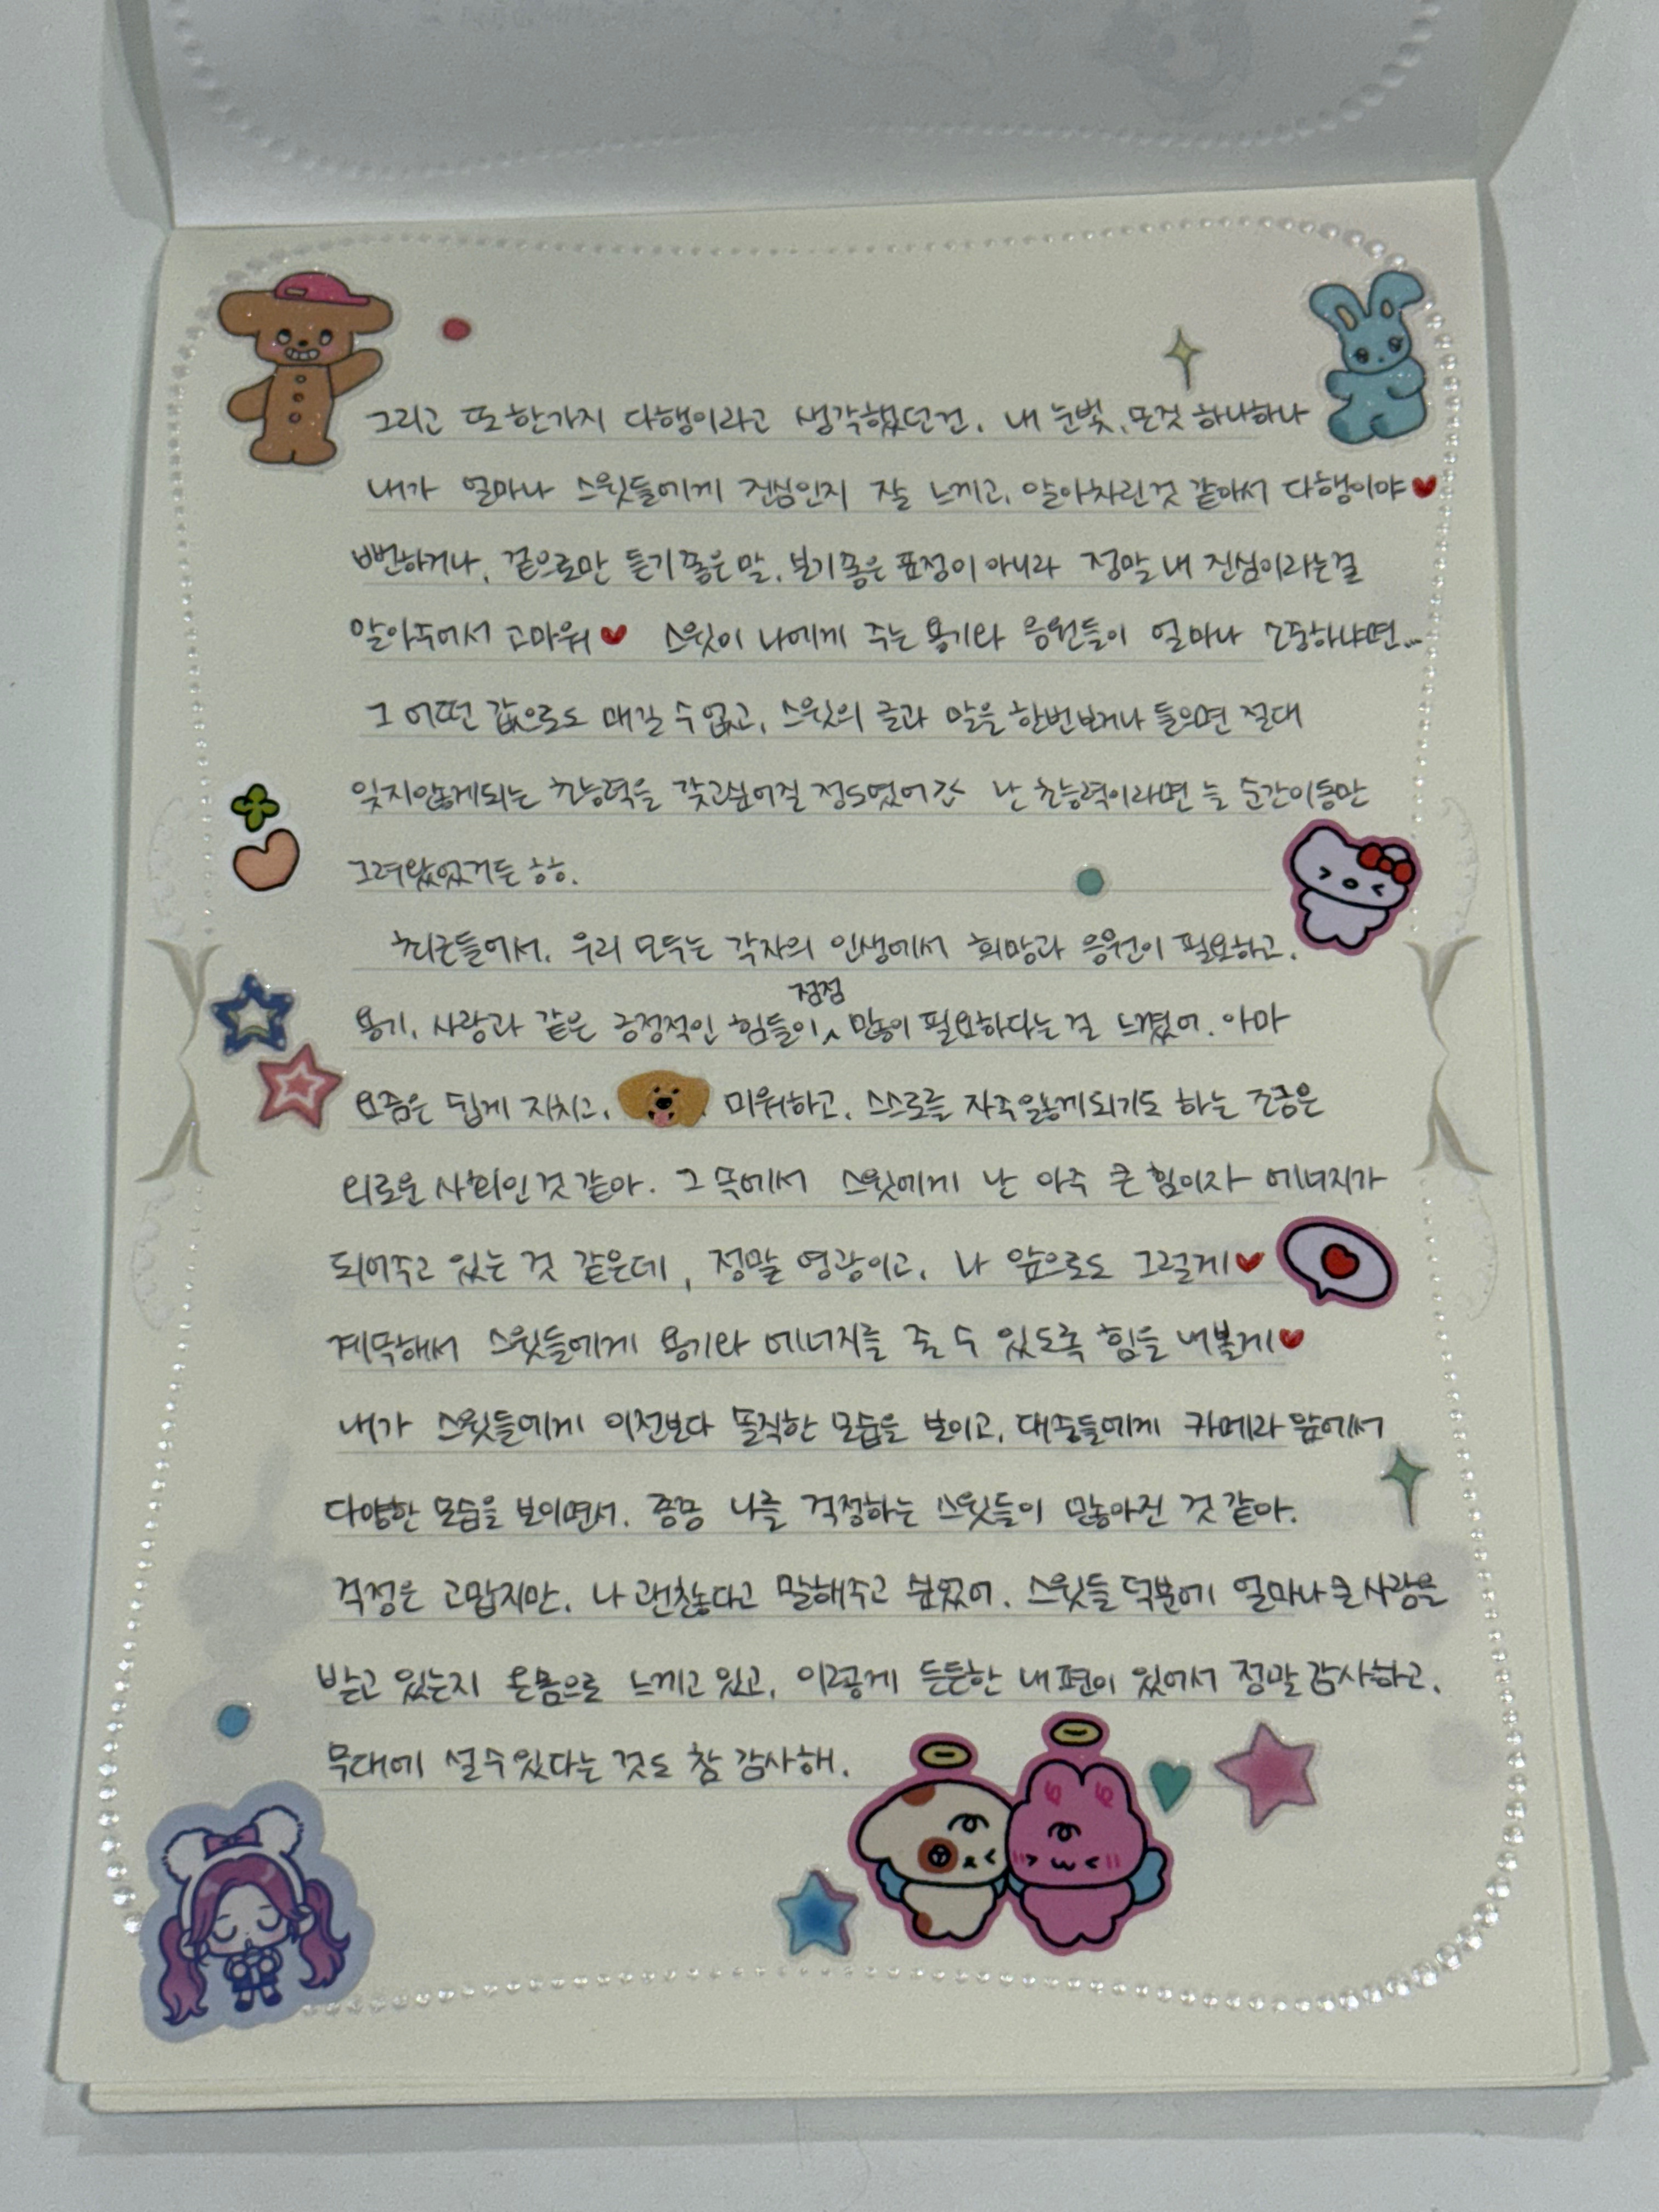 그리고 또 한가지 다행이라고 생각했던건, 내 눈빛, 몸짓 하나하나
내가 얼마나 스윗들에게 진심인지 잘 느끼고, 알아차린것 같아서 다행이야♥
뻔하거나, 겉으로만 듣기좋은 말, 보기좋은 표정이 아니라 정말 내 진심이라는걸
알아주어서 고마워♥ 스윗이 나에게 주는 용기와 응원들이 얼마나 소중하냐면...
그 어떤 값으로도 매길 수 없고, 스윗의 글과 말을 한번보거나 들으면 절대
잊지않게되는 초능력을 갖고싶어질 정도였어 난 초능력이라면 늘 순간이동만
그려왔었거든 ㅎㅎ.
최근들어서, 우리 모두는 각자의 인생에서 희망과 응원이 필요하고,
용기, 사랑과 같은 긍정적인 힘들이 점점 많이 필요하다는 걸 느꼈어. 아마
요즘은 쉽게 지치고, 미워하고, 스스로를 자책않게되기도 하는 조금은
외로운 사회인것 같아. 그 속에서 스윗에게 난 아주 큰 힘이자 에너지가
되어주고 있는 것 같은데, 정말 영광이고, 나 앞으로도 그럴게♥
계속해서 스윗들에게 용기와 에너지를 줄 수 있도록 힘을 내볼게♥
내가 스윗들에게 이전보다 솔직한 모습을 보이고, 대중들에게 카메라 앞에서
다양한 모습을 보이면서, 종종 나를 걱정하는 스윗들이 많아진 것 같아.
걱정은 고맙지만, 나 괜찮다고 말해주고 싶었어. 스윗들 덕분에 얼마나 큰 사랑을
받고 있는지 온몸으로 느끼고 있고, 이렇게 든든한 내편이 있어서 정말 감사하고,
무대에 설수있다는 것도 참 감사해.